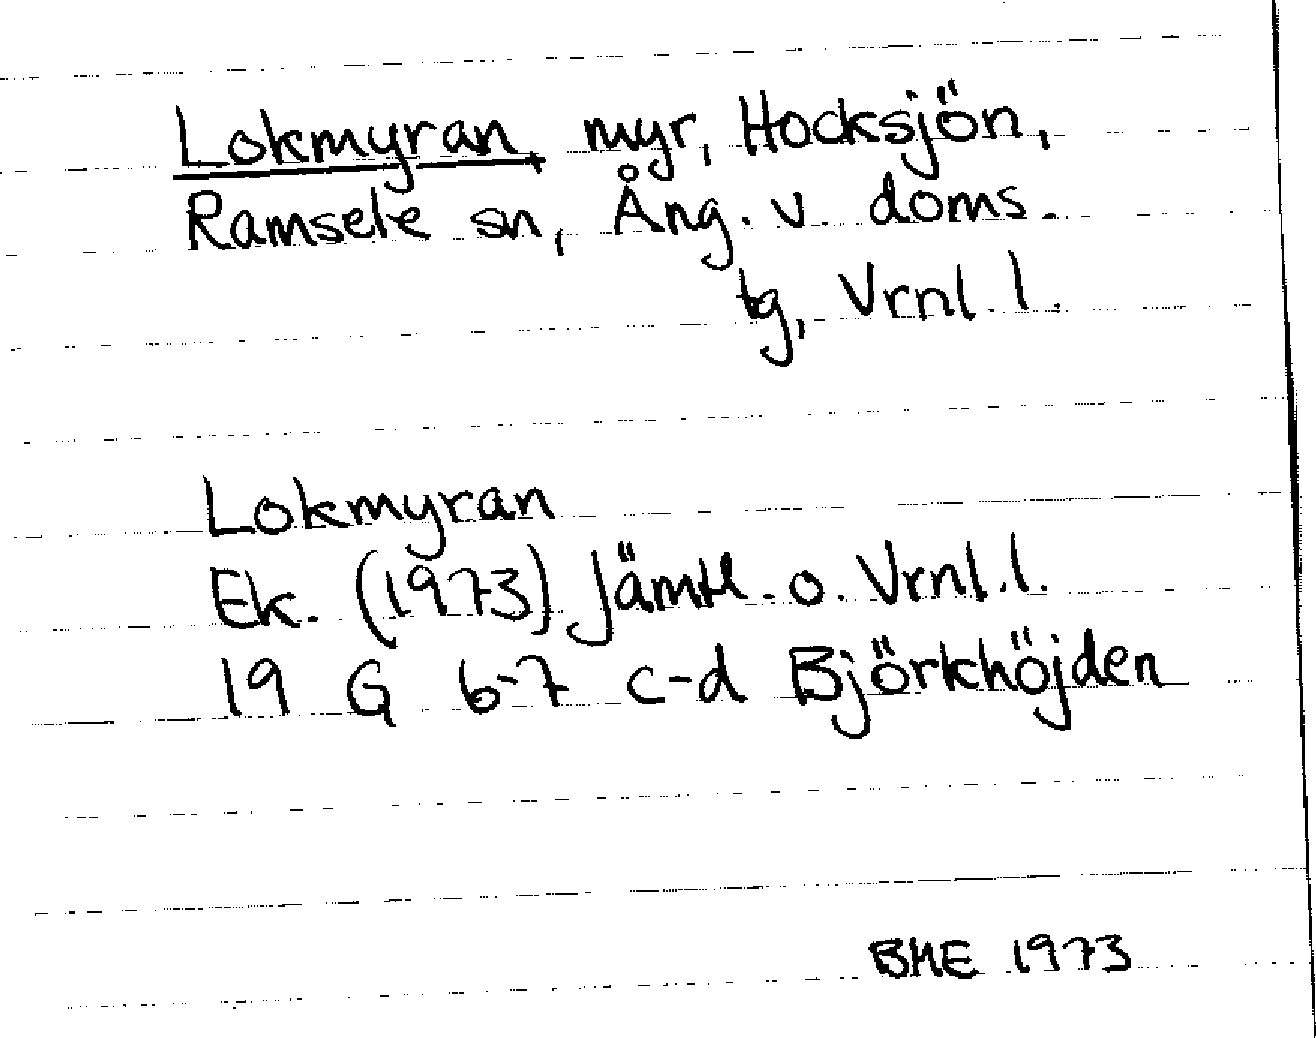 Lokmyran, myr, Hocksjön,
Ramsele sn, Ång. v. doms.
tg, Vrnl. l.
Lokmyran
Ek. (1973) Jämtl. o. Vrnl. l.
19 G 6-7 c-d Björkhöjden
BME 1973